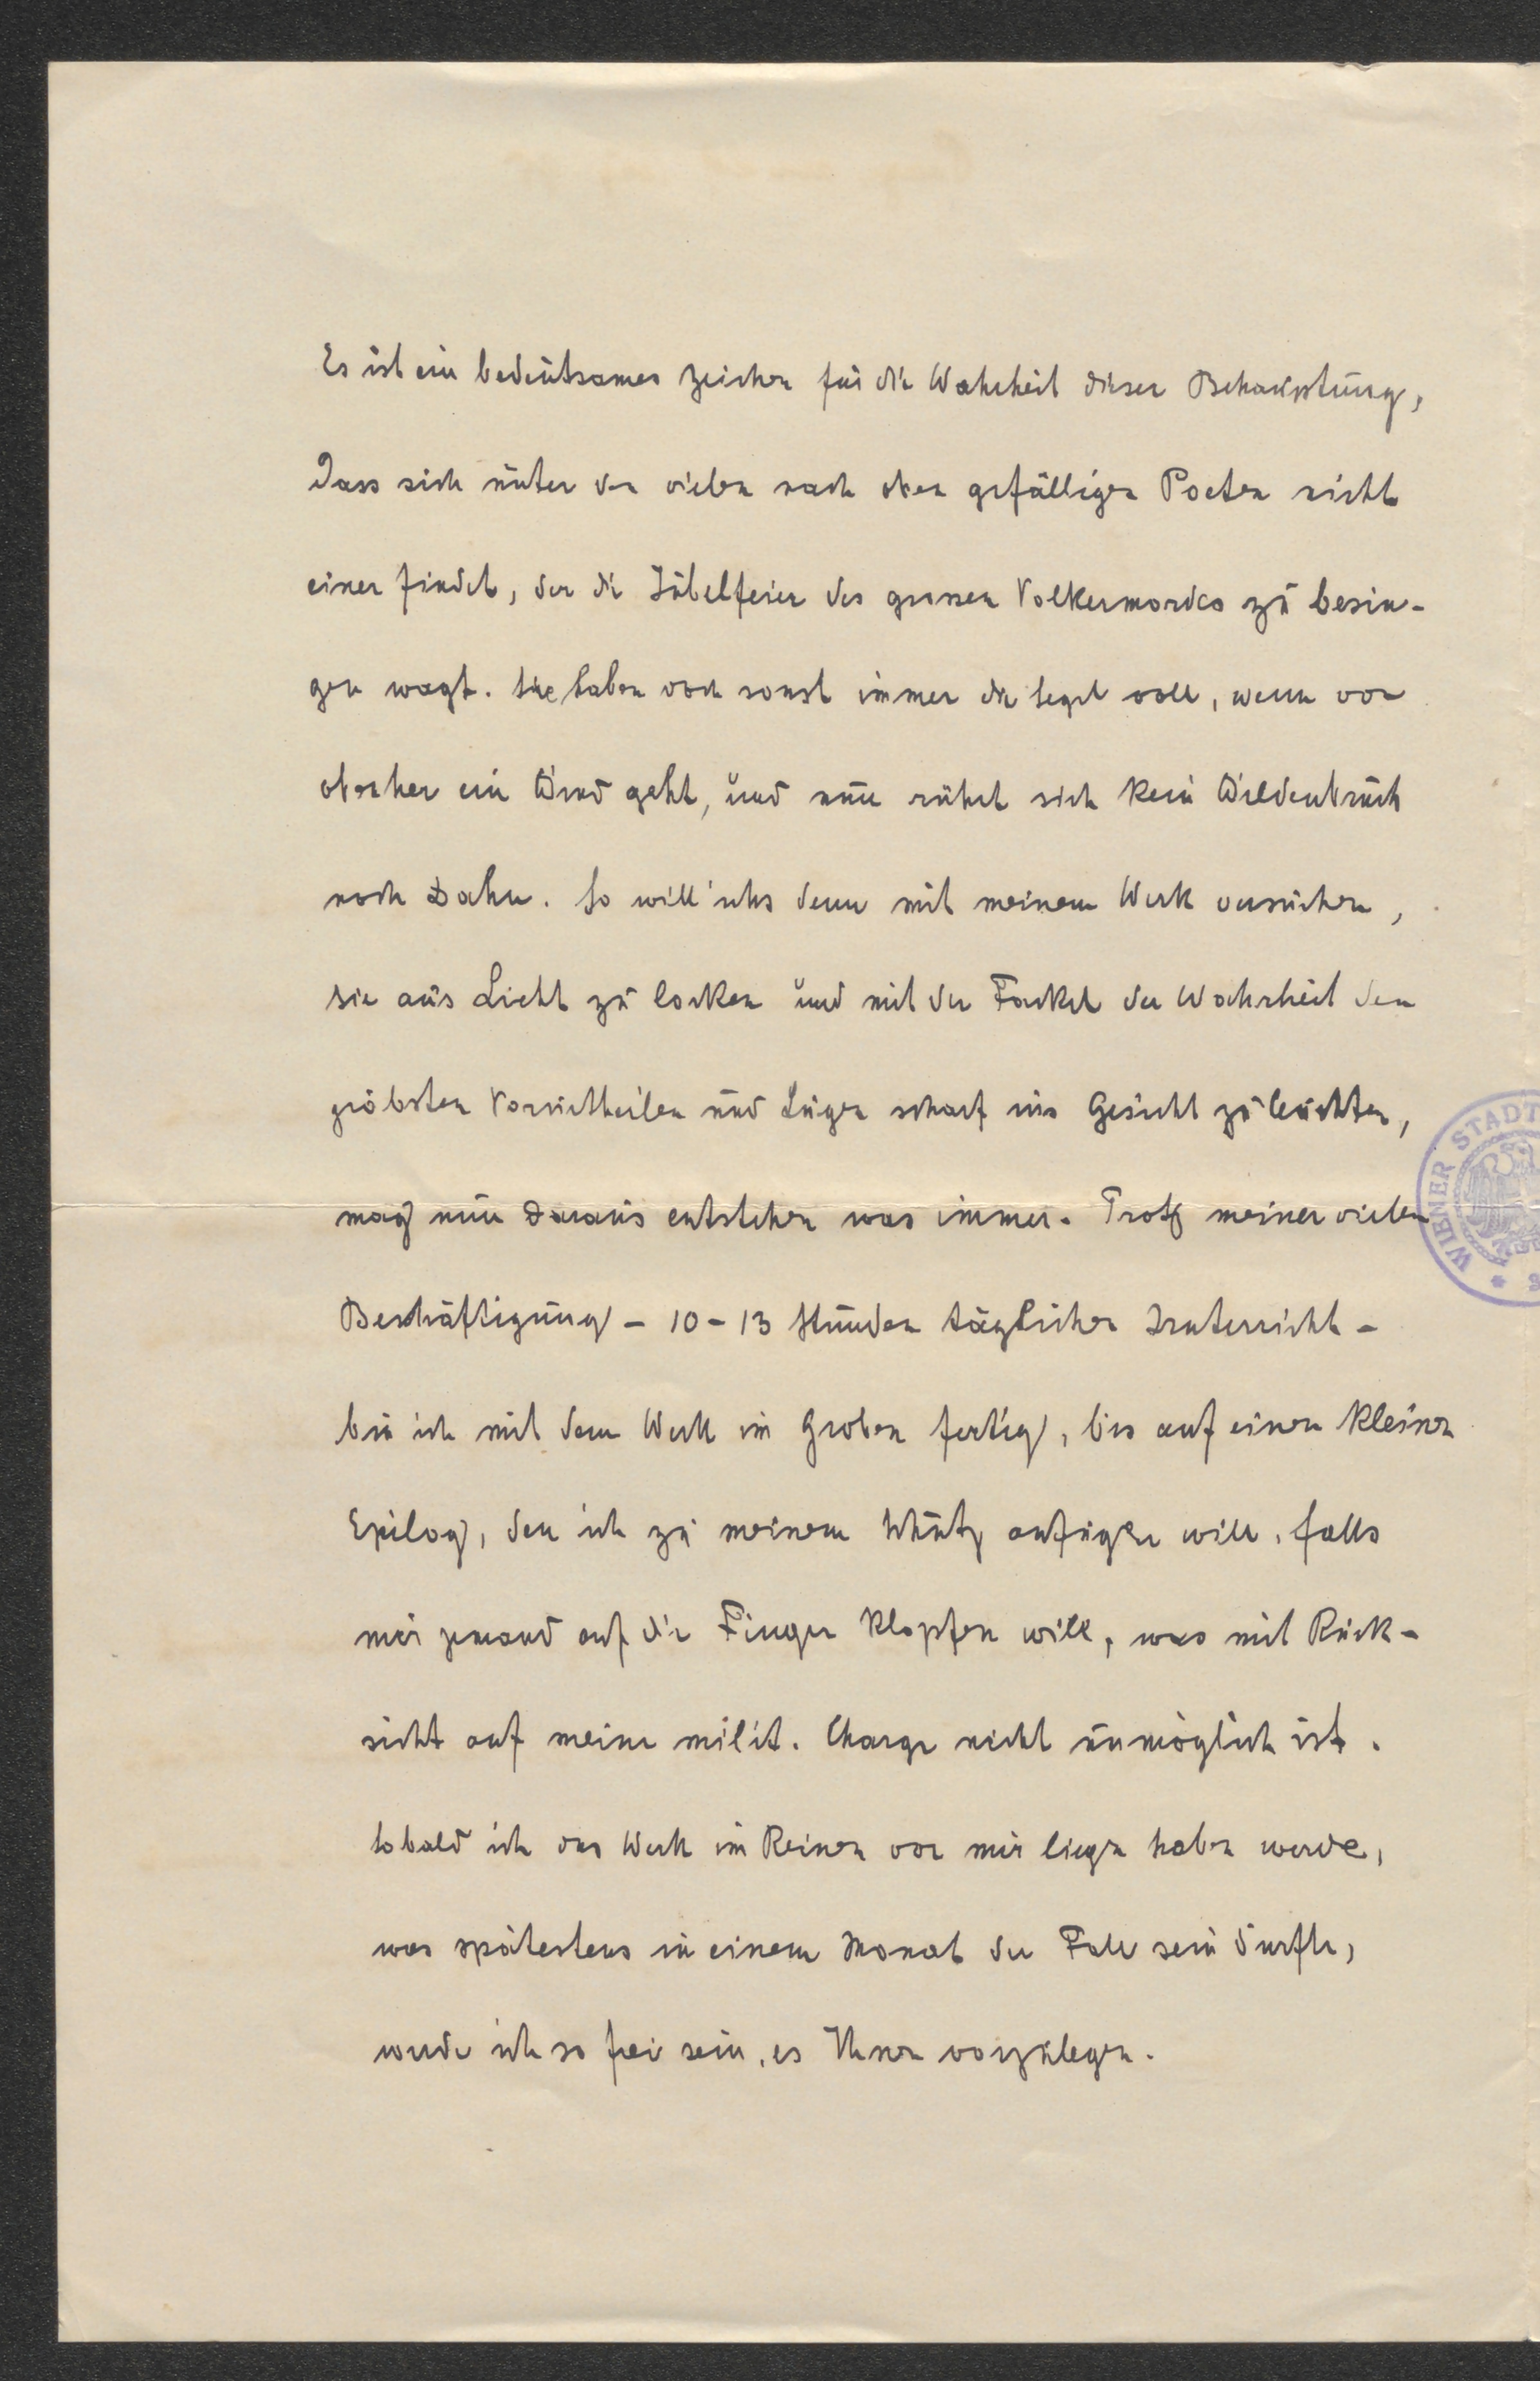 Es ist ein bedeutsames Zeichen für die Wahrheit dieser Behauptung,
dass sich unter den vielen nach oben gefälligen Poeten nicht
einer findet, der die Jubelfeier des grossen Volkermordes zu besin-
gen wagt. Sie haben doch sonst immer die Segel voll, wenn von
obenher ein Wind geht, und nun rührt sich kein Wildenbruch
noch Dahn. So will ichs denn mit meinem Werk versuchen,
sie ans Licht zu locken und mit der Fackel der Wahrheit den
gröbsten Vorurtheilen und Lügen scharf ins Gesicht zu leuchten,
mag nun daraus entstehen was immer. Trotz meiner vielen
Beschäftigung – 10 – 13 Stunden täglichen Unterricht –
bin ich mit dem Werk im Groben fertig, bis auf einen kleinen
Epilog, den ich zu meinem Schutz anfügen will, falls
mir jemand auf die Finger klopfen will, was mit Rück-
sicht auf meine milit. Charge nicht unmöglich ist.
Sobald ich das Werk im Reinen vor mir liegen haben werde,
was spätestens in einem Monat der Fall sein dürfte,
werde ich so frei sein, es Ihnen vorzulegen.
WIENER STADT